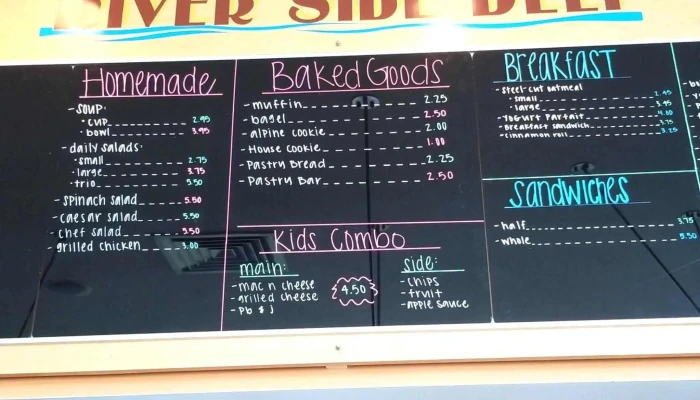 RIVER SIDE DELI
Homemade
- soup:
• cup 2.95
• bowl 3.95
- daily salads:
• small 2.75
• large 3.75
• trio 5.50
- spinach salad 5.50
- caesar salad 5.50
- chef salad 5.50
- grilled chicken 3.00
Baked Goods
- muffin 2.25
- bagel 2.50
- alpine cookie 2.00
- House cookie 1.00
- Pastry Bread 2.25
- Pastry Bar 2.50
Kids Combo
main:
- mac n cheese
- grilled cheese
- pb & j
4.50
side:
- chips
- fruit
- apple sauce
Breakfast
- steel-cut oatmeal
• small 2.95
• large 3.95
- Yogurt Parfait 4.00
- Breakfast sandwich 3.75
- cinnamon roll 3.25
Sandwiches
- half 3.75
- whole 5.50